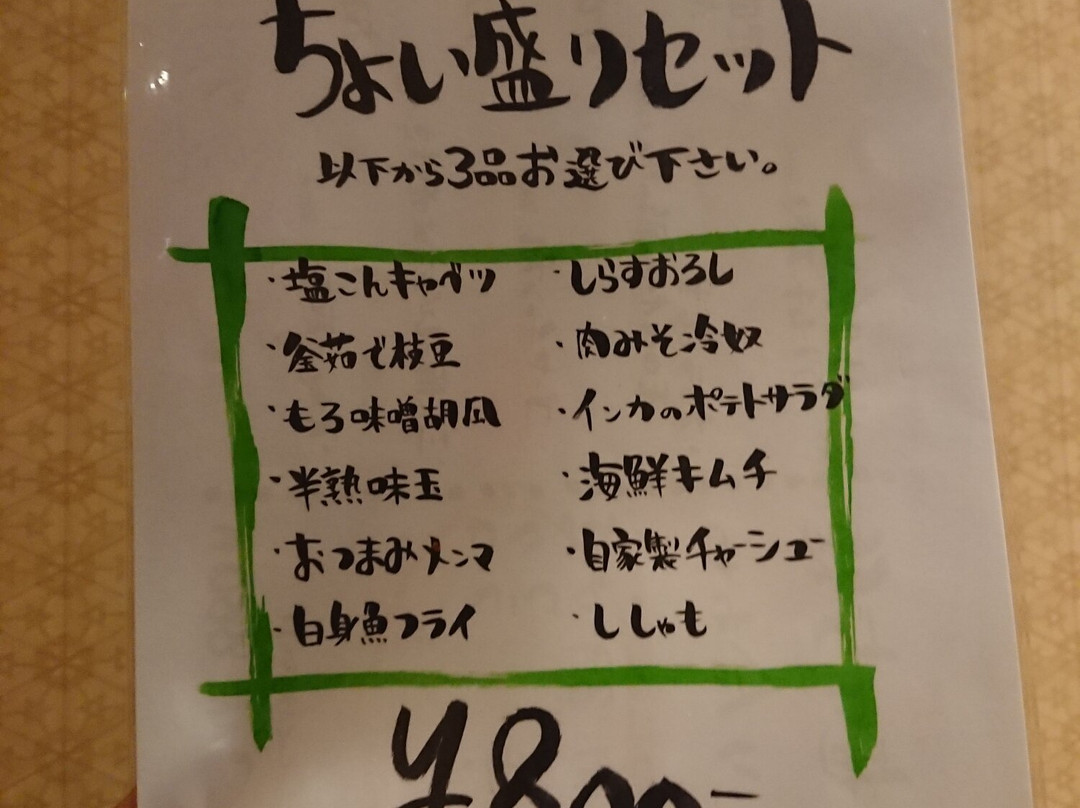 ちょい盛りセット
以下から3品お選び下さい。
・塩こんキャベツ
・釜茹で枝豆
・もろ味噌胡瓜
・半熟味玉
・おつまみメンマ
・白身魚フライ
・しらすおろし
・肉みそ冷奴
・インカのポテトサラダ
・海鮮キムチ
・自家製チャーシュー
・ししゃも
¥800-